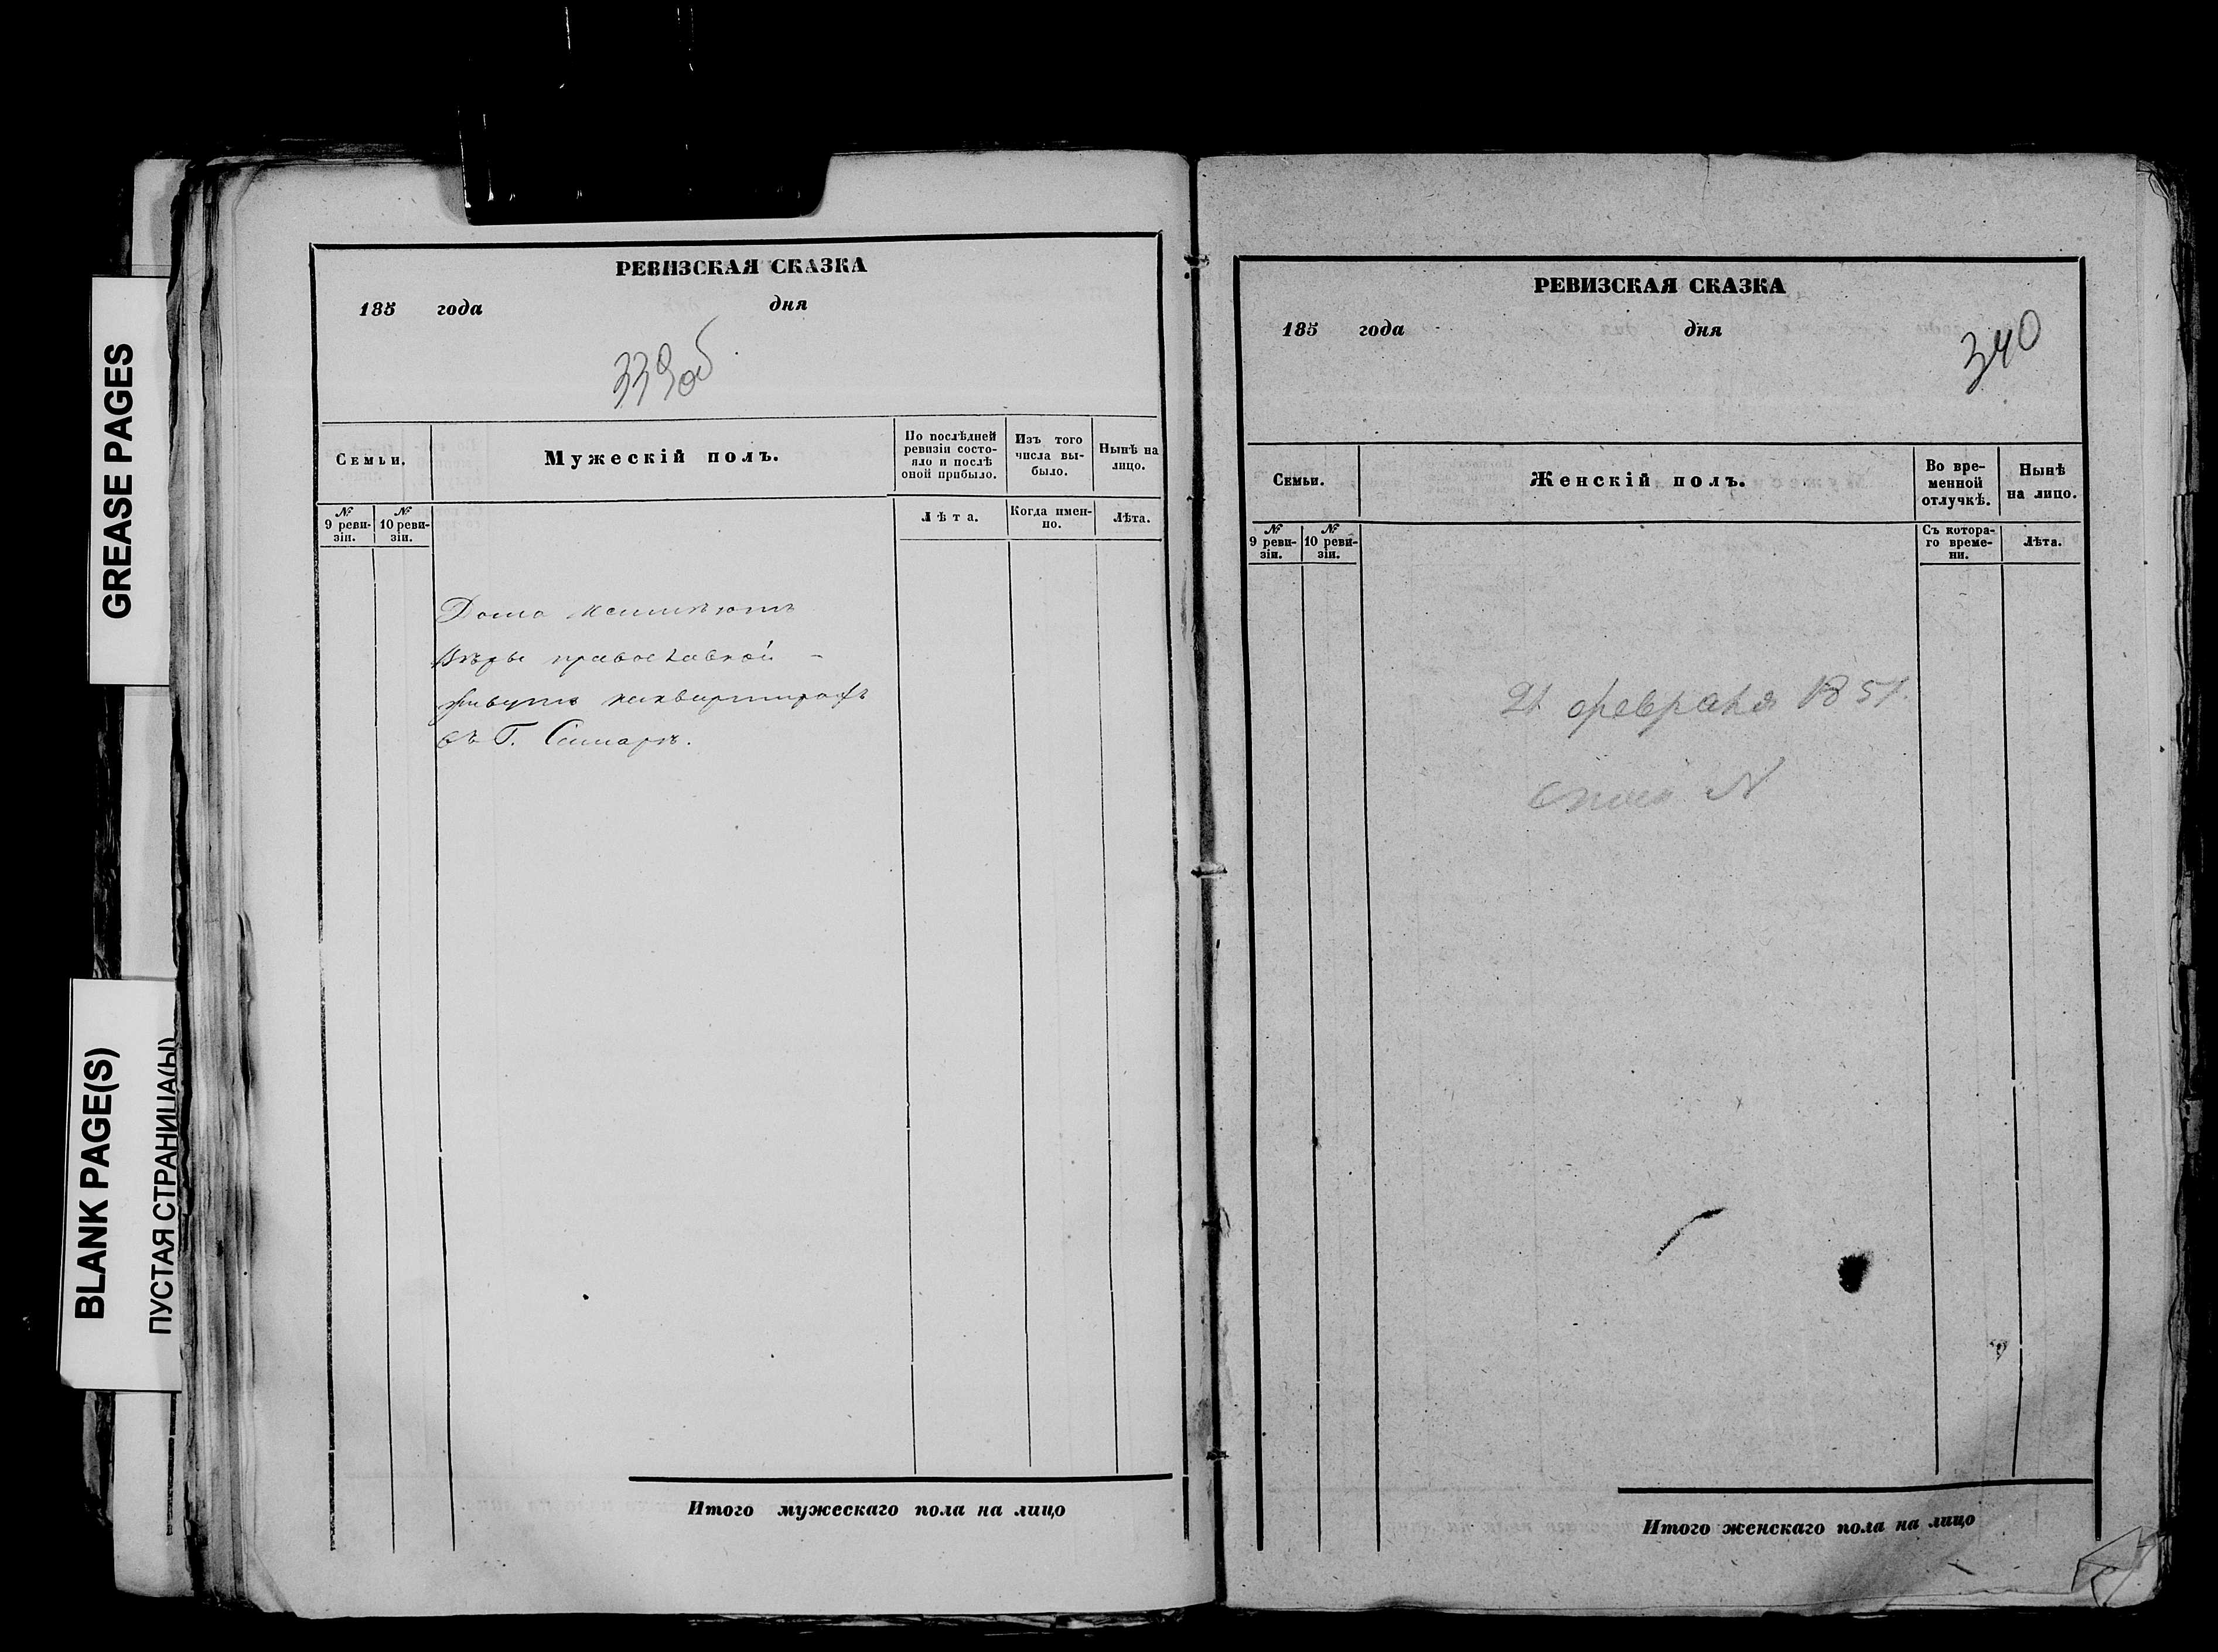 GREASE PAGES
BLANK PAGE(S)
ПУСТАЯ СТРАНИЦА(Ы)
РЕВИЗСКАЯ СКАЗКА
185 года дня
339об
Семьи.
Мужескій полъ.
По послѣдней ревизіи состо-
яло и послѣ
оной прибыло.
Изъ того
числа вы-
было.
Нынѣ на
лицо.
№
9 реви-
зіи.
№
10 реви-
зіи.
Лѣта.
Когда имен-
но.
Лѣта.
Дома неимѣютъ
Вѣры православной –
живутъ наквартирахъ
въ Г. Самарѣ.
Итого мужескаго пола на лицо
РЕВИЗСКАЯ СКАЗКА
185 года дня
340
Семьи.
Женскій полъ.
Во вре-
менной
отлучкѣ.
Нынѣ
на лицо.
№
9 реви-
зіи.
№
10 реви-
зіи.
Съ котора-
го време-
ни.
Лѣта.
21 февраля 1851.
N
Итого женскаго пола на лицо